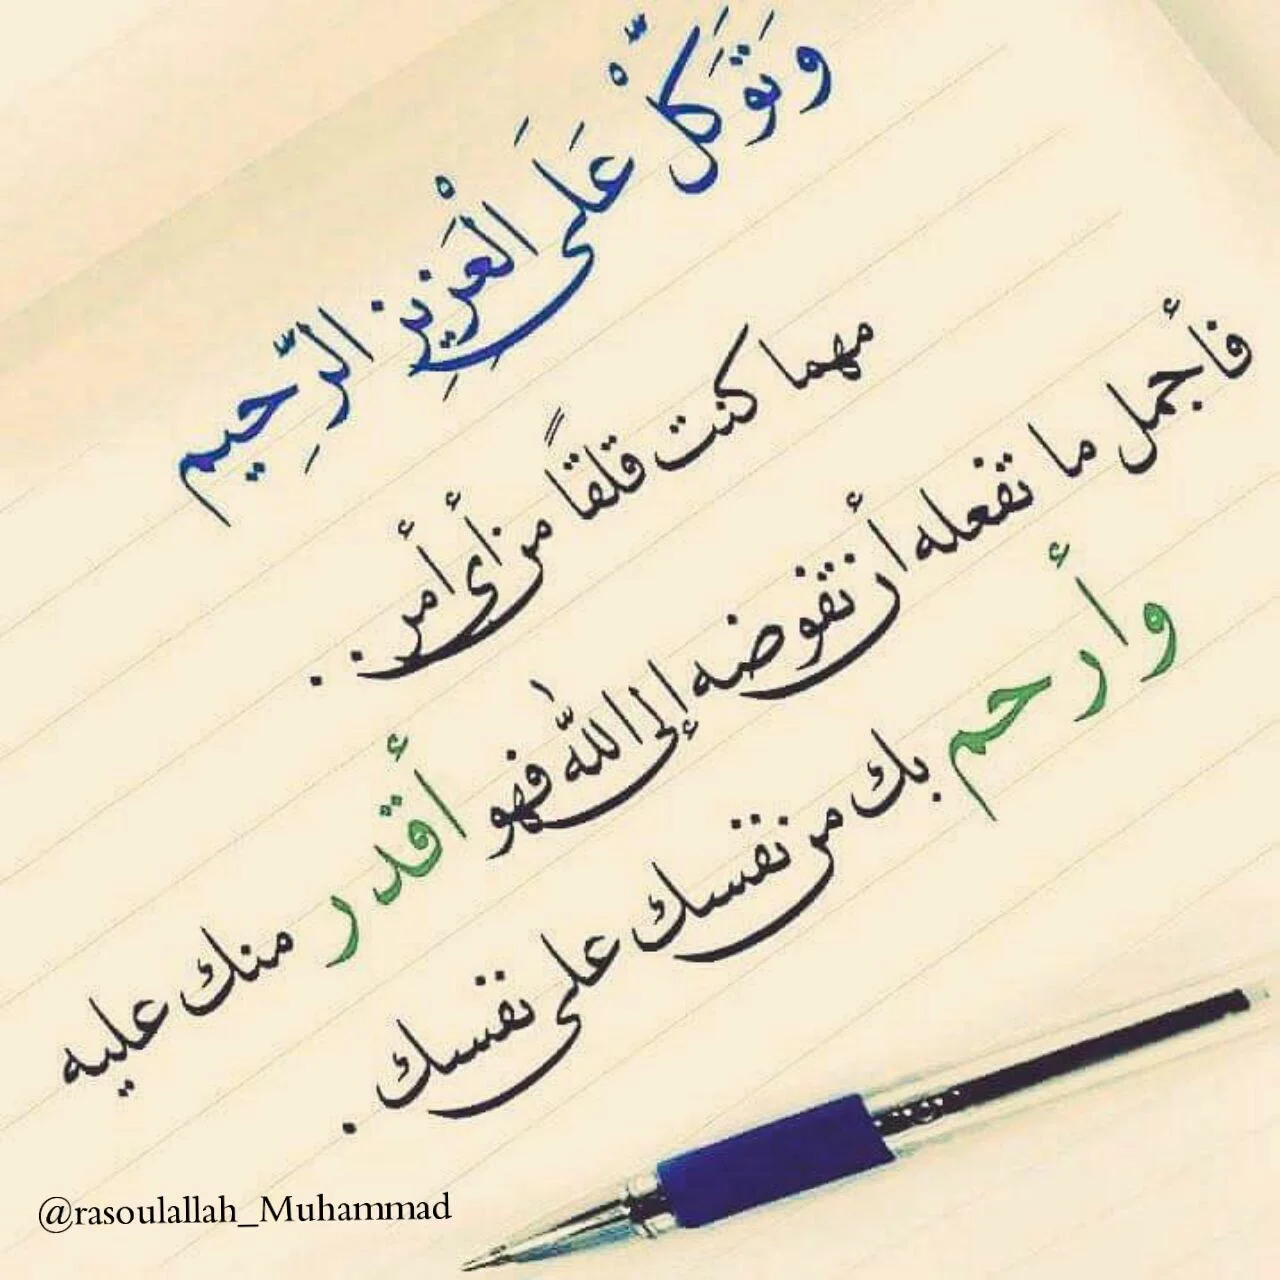 وَتَوَكَّلْ عَلَى الْعَزِيزِ الرَّحِيم
مهما كنت قلقاً من أي أمر . .
فأجمل ما تفعله أن تفوضه إلى الله فهو أقدر منك عليه
وأرحم بك من نفسك على نفسك .
@rasoulallah_Muhammad